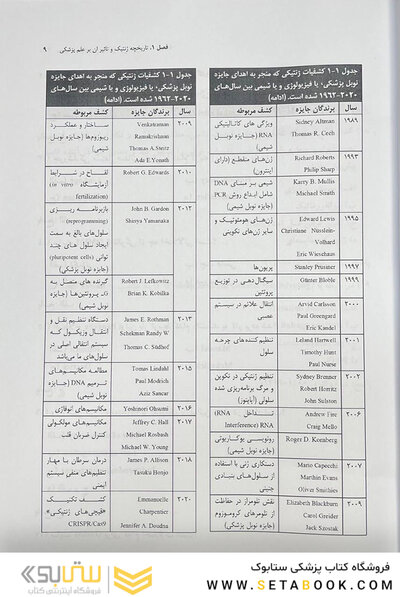 فصل ۱. تاریخچه ژنتیک و تاثیر آن بر علم پزشکی
۹
جدول ۱-۱ کشفیات ژنتیکی که منجر به اهدای جایزه
نوبل پزشکی، یا فیزیولوژی و یا شیمی بین سال‌های
۲۰۲۰-۱۹۶۲ شده است. (ادامه)
سال
برندگان جایزه
کشف مربوطه
۱۹۸۹
Sidney Altman
Thomas R. Cech
ویژگی های کاتالیتیکی
RNA (جایزه نوبل
شیمی)
۱۹۹۳
Richard Roberts
Philip Sharp
ژن‌های منقطع (دارای
اینترون)
Karry B. Mullis
Michael Smith
شیمی بر مبنای DNA
شامل ابداع روش PCR
(جایزه نوبل شیمی)
۱۹۹۵
Edward Lewis
Christiane Nüsslein-
Volhard
Eric Wieschaus
ژن‌های هوموتیک و
سایر ژن‌های تکوینی
۱۹۹۷
Stanley Prusiner
پریون‌ها
۱۹۹۹
Günter Bloble
سیگنال‌دهی در توزیع
پروتئین
۲۰۰۰
Arvid Carlsson
Paul Greengard
Eric Kandel
انتقال علائم در سیستم
عصبی
۲۰۰۱
Leland Hartwell
Timothy Hunt
Paul Nurse
تنظیم کننده های چرخه
سلول
۲۰۰۲
Sydney Brenner
Robert Horritz
John Sulston
تنظیم ژنتیکی در تکوین
و مرگ برنامه‌ریزی شده
سلولی (آپاپتوز)
۲۰۰۶
Andrew Fire
Craig Mello
تداخل RNA (RNA
Interference)
Roger D. Kornberg
رونویسی یوکاریوتی
(جایزه نوبل شیمی)
۲۰۰۷
Mario Capecchi
Marthin Evans
Oliver Smithies
دستکاری ژنی با استفاده
از سلول‌های بنیادی
جنینی
۲۰۰۹
Elizabeth Blackburn
Carol Greider
Jack Szostak
نقش تلومراز در حفاظت
از تلومرهای کروموزوم
(جایزه نوبل پزشکی)
جدول ۱-۱ کشفیات ژنتیکی که منجر به اهدای جایزه
نوبل پزشکی، یا فیزیولوژی و یا شیمی بین سال‌های
۲۰۲۰-۱۹۶۲ شده است. (ادامه)
سال
برندگان جایزه
کشف مربوطه
۲۰۰۹
Venkatraman
Ramakrishnan
Thomas A. Steitz
Ada E. Yonath
ساختار و عملکرد
ریبوزوم‌ها (جایزه نوبل
شیمی)
۲۰۱۰
Robert G. Edwards
لقاح در شرایط
آزمایشگاه (in vitro
fertilization)
۲۰۱۲
John B. Gardon
Shinya Yamanaka
بازبرنامه ریزی
(reprogramming)
سلول‌های بالغ به سمت
ایجاد سلول های چند
توانی (pluripotent cells)
(جایزه نوبل پزشکی)
Robert J. Lefkowitz
Brian K. Kobilka
گیرنده های متصل به
G- پروتئین‌ها (جایزه
نوبل شیمی)
۲۰۱۳
James E. Rothman
Schekman Randy W.
Thomas C. Südhof
دستگاه تنظیم نقل و
انتقال وزیکول که
سیستم انتقالی اصلی در
سلول های ما می‌باشد
۲۰۱۵
Tomas Lindahl
Paul Modrich
Aziz Sancar
مطالعه مکانیسم‌های
ترمیم DNA (جایزه
نوبل شیمی)
۲۰۱۶
Yoshinori Ohsumi
مکانیسم های اتوفاژی
۲۰۱۷
Jeffrey C. Hall
Michael Rosbash
Michael W. Young
مکانیسم‌های مولکولی
کنترل ضربان قلب
۲۰۱۸
James P. Allison
Tasuku Honjo
درمان سرطان با مهار
تنظیم‌های منفی سیستم
ایمنی
۲۰۲۰
Emmanuelle
Charpentier
Jennifer A. Doudna
کشف تکنیک
«قیچی‌های ژنتیکی»
CRISPR/Cas9
ستابوک
فروشگاه اینترنتی کتاب
فروشگاه کتاب پزشکی ستابوک
WWW.SETABOOK.COM